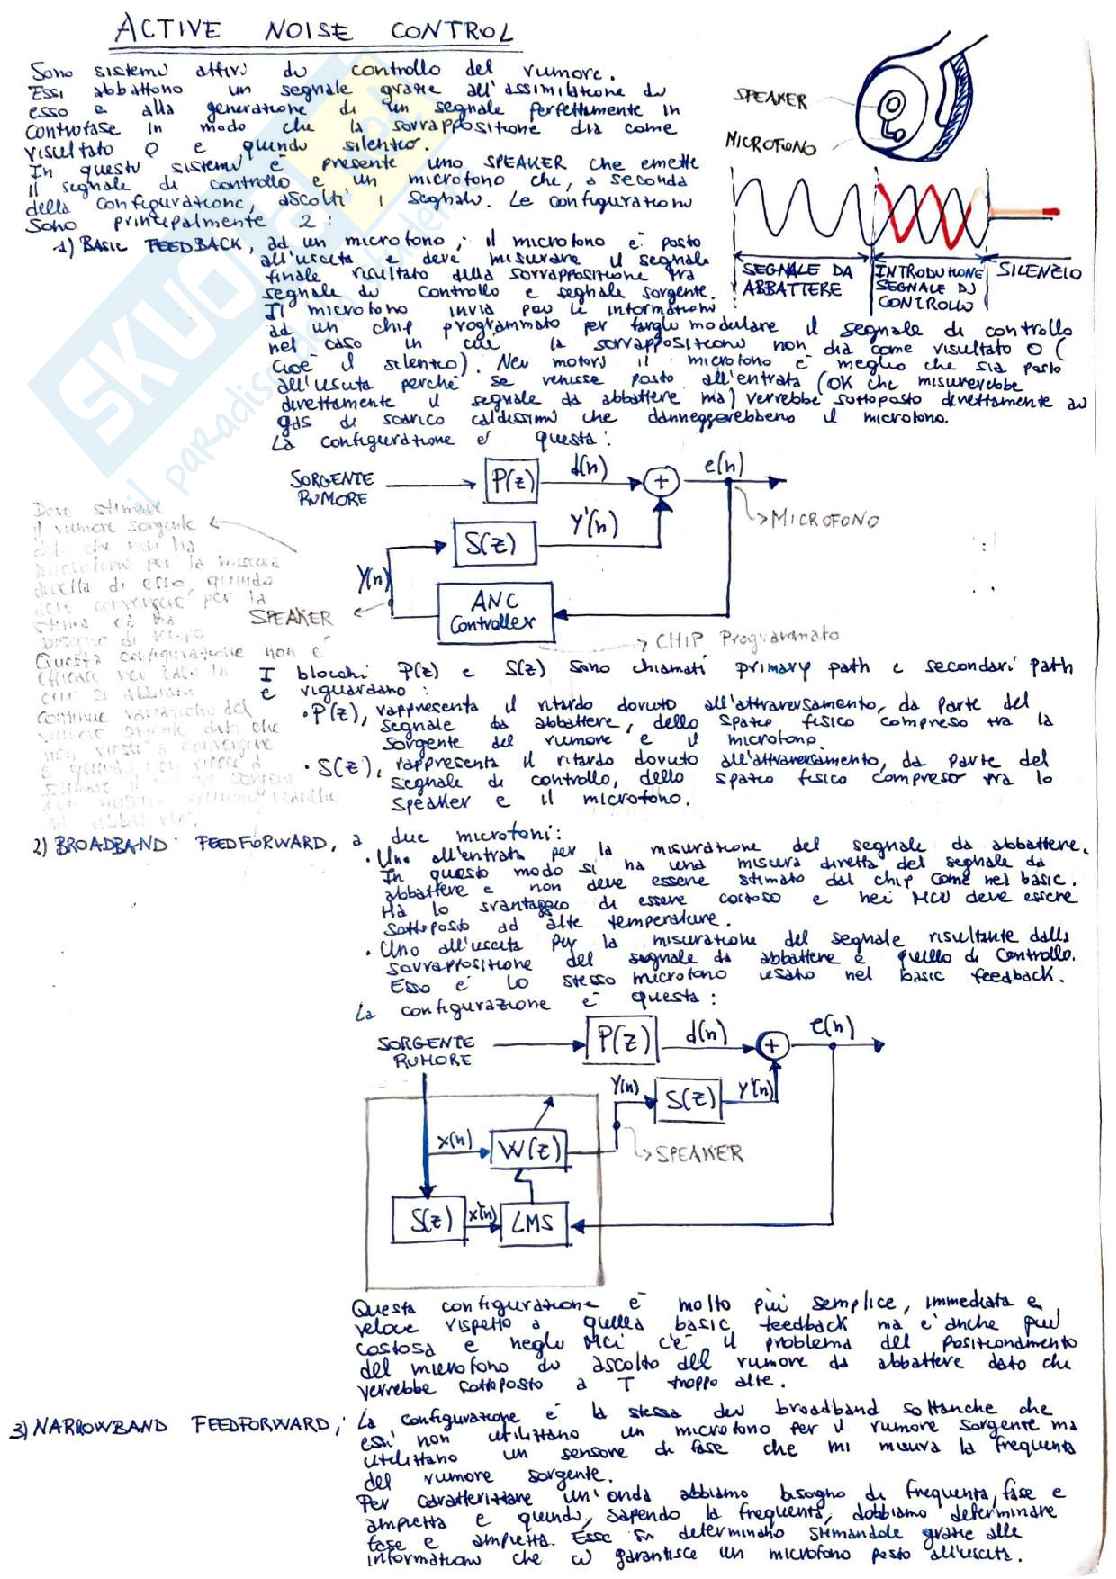 ACTIVE NOISE CONTROL
Sono sistemi attivi di controllo del rumore.
Essi abbattono un segnale grazie all'assimilazione di
esso e alla generazione di un segnale perfettamente in
controfase in modo che la sovrapposizione dia come
risultato 0 e quindi silenzio.
In questi sistemi è presente uno SPEAKER che emette
il segnale di controllo e un microfono che, a seconda
della configurazione, ascolti i segnali. Le configurazioni
sono principalmente 2:
SPEAKER
MICROFONO
SEGNALE DA
ABBATTERE
INTRODUZIONE
SEGNALE DI
CONTROLLO
SILENZIO
1) BASIC FEEDBACK, ad un microfono; il microfono è posto
all'uscita e deve misurare il segnale
finale risultato della sovrapposizione tra
segnale di controllo e segnale sorgente.
Il microfono invia poi le informazioni
ad un chip programmato per fargli modulare il segnale di controllo
nel caso in cui la sovrapposizione non dia come risultato 0 (
cioè il silenzio). Nei motori il microfono è meglio che sia posto
all'uscita perché se venisse posto all'entrata (OK che misurerebbe
direttamente il segnale da abbattere ma) verrebbe sottoposto direttamente ai
gas di scarico caldissimi che danneggerebbero il microfono.
La configurazione è questa:
SORGENTE
RUMORE
P(z)
d(n)
+
e(n)
MICROFONO
S(z)
Y'(n)
Y(n)
SPEAKER
ANC
Controller
CHIP Programmato
Deve stimare
il rumore sorgente
dato che non ha
microfono per la misura
diretta di esso, quindi
Questa configurazione non è
efficace nel caso in
cui si abbiano
continue variazioni del
I blocchi P(z) e S(z) sono chiamati primary path e secondari path
e riguardano:
• P(z), rappresenta il ritardo dovuto all'attraversamento, da parte del
segnale da abbattere, dello spazio fisico compreso tra la
sorgente del rumore e il microfono.
• S(z), rappresenta il ritardo dovuto all'attraversamento, da parte del
segnale di controllo, dello spazio fisico compreso tra lo
speaker e il microfono.
2) BROADBAND FEEDFORWARD, a due microfoni:
• Uno all'entrata per la misurazione del segnale da abbattere.
In questo modo si ha una misura diretta del segnale da
abbattere e non deve essere stimato dal chip come nel basic.
Ha lo svantaggio di essere costoso e nei MCI deve essere
sottoposto ad alte temperature.
• Uno all'uscita per la misurazione del segnale risultante dalla
sovrapposizione del segnale da abbattere e quello di controllo.
Esso è lo stesso microfono usato nel basic feedback.
La configurazione è questa:
SORGENTE
RUMORE
P(z)
d(n)
+
e(n)
Y(n)
S(z)
Y'(n)
SPEAKER
x(n)
W(z)
S(z)
x'(n)
LMS
Questa configurazione è molto più semplice, immediata e
veloce rispetto a quella basic feedback ma è anche più
costosa e negli MCI c'è il problema del posizionamento
del microfono di ascolto del rumore da abbattere dato che
verrebbe sottoposto a T troppo alte.
3) NARROWBAND FEEDFORWARD; La configurazione è la stessa dei broadband soltanto che
essi non utilizzano un microfono per il rumore sorgente ma
utilizzano un sensore di fase che mi misura la frequenza
del rumore sorgente.
Per caratterizzare un'onda abbiamo bisogno di frequenza, fase e
ampiezza e quindi, sapendo la frequenza, dobbiamo determinare
fase e ampiezza. Esse si determinano stimandole grazie alle
informazioni che ci garantisce un microfono posto all'uscita.
SKUOLA
il paradiso dello studente